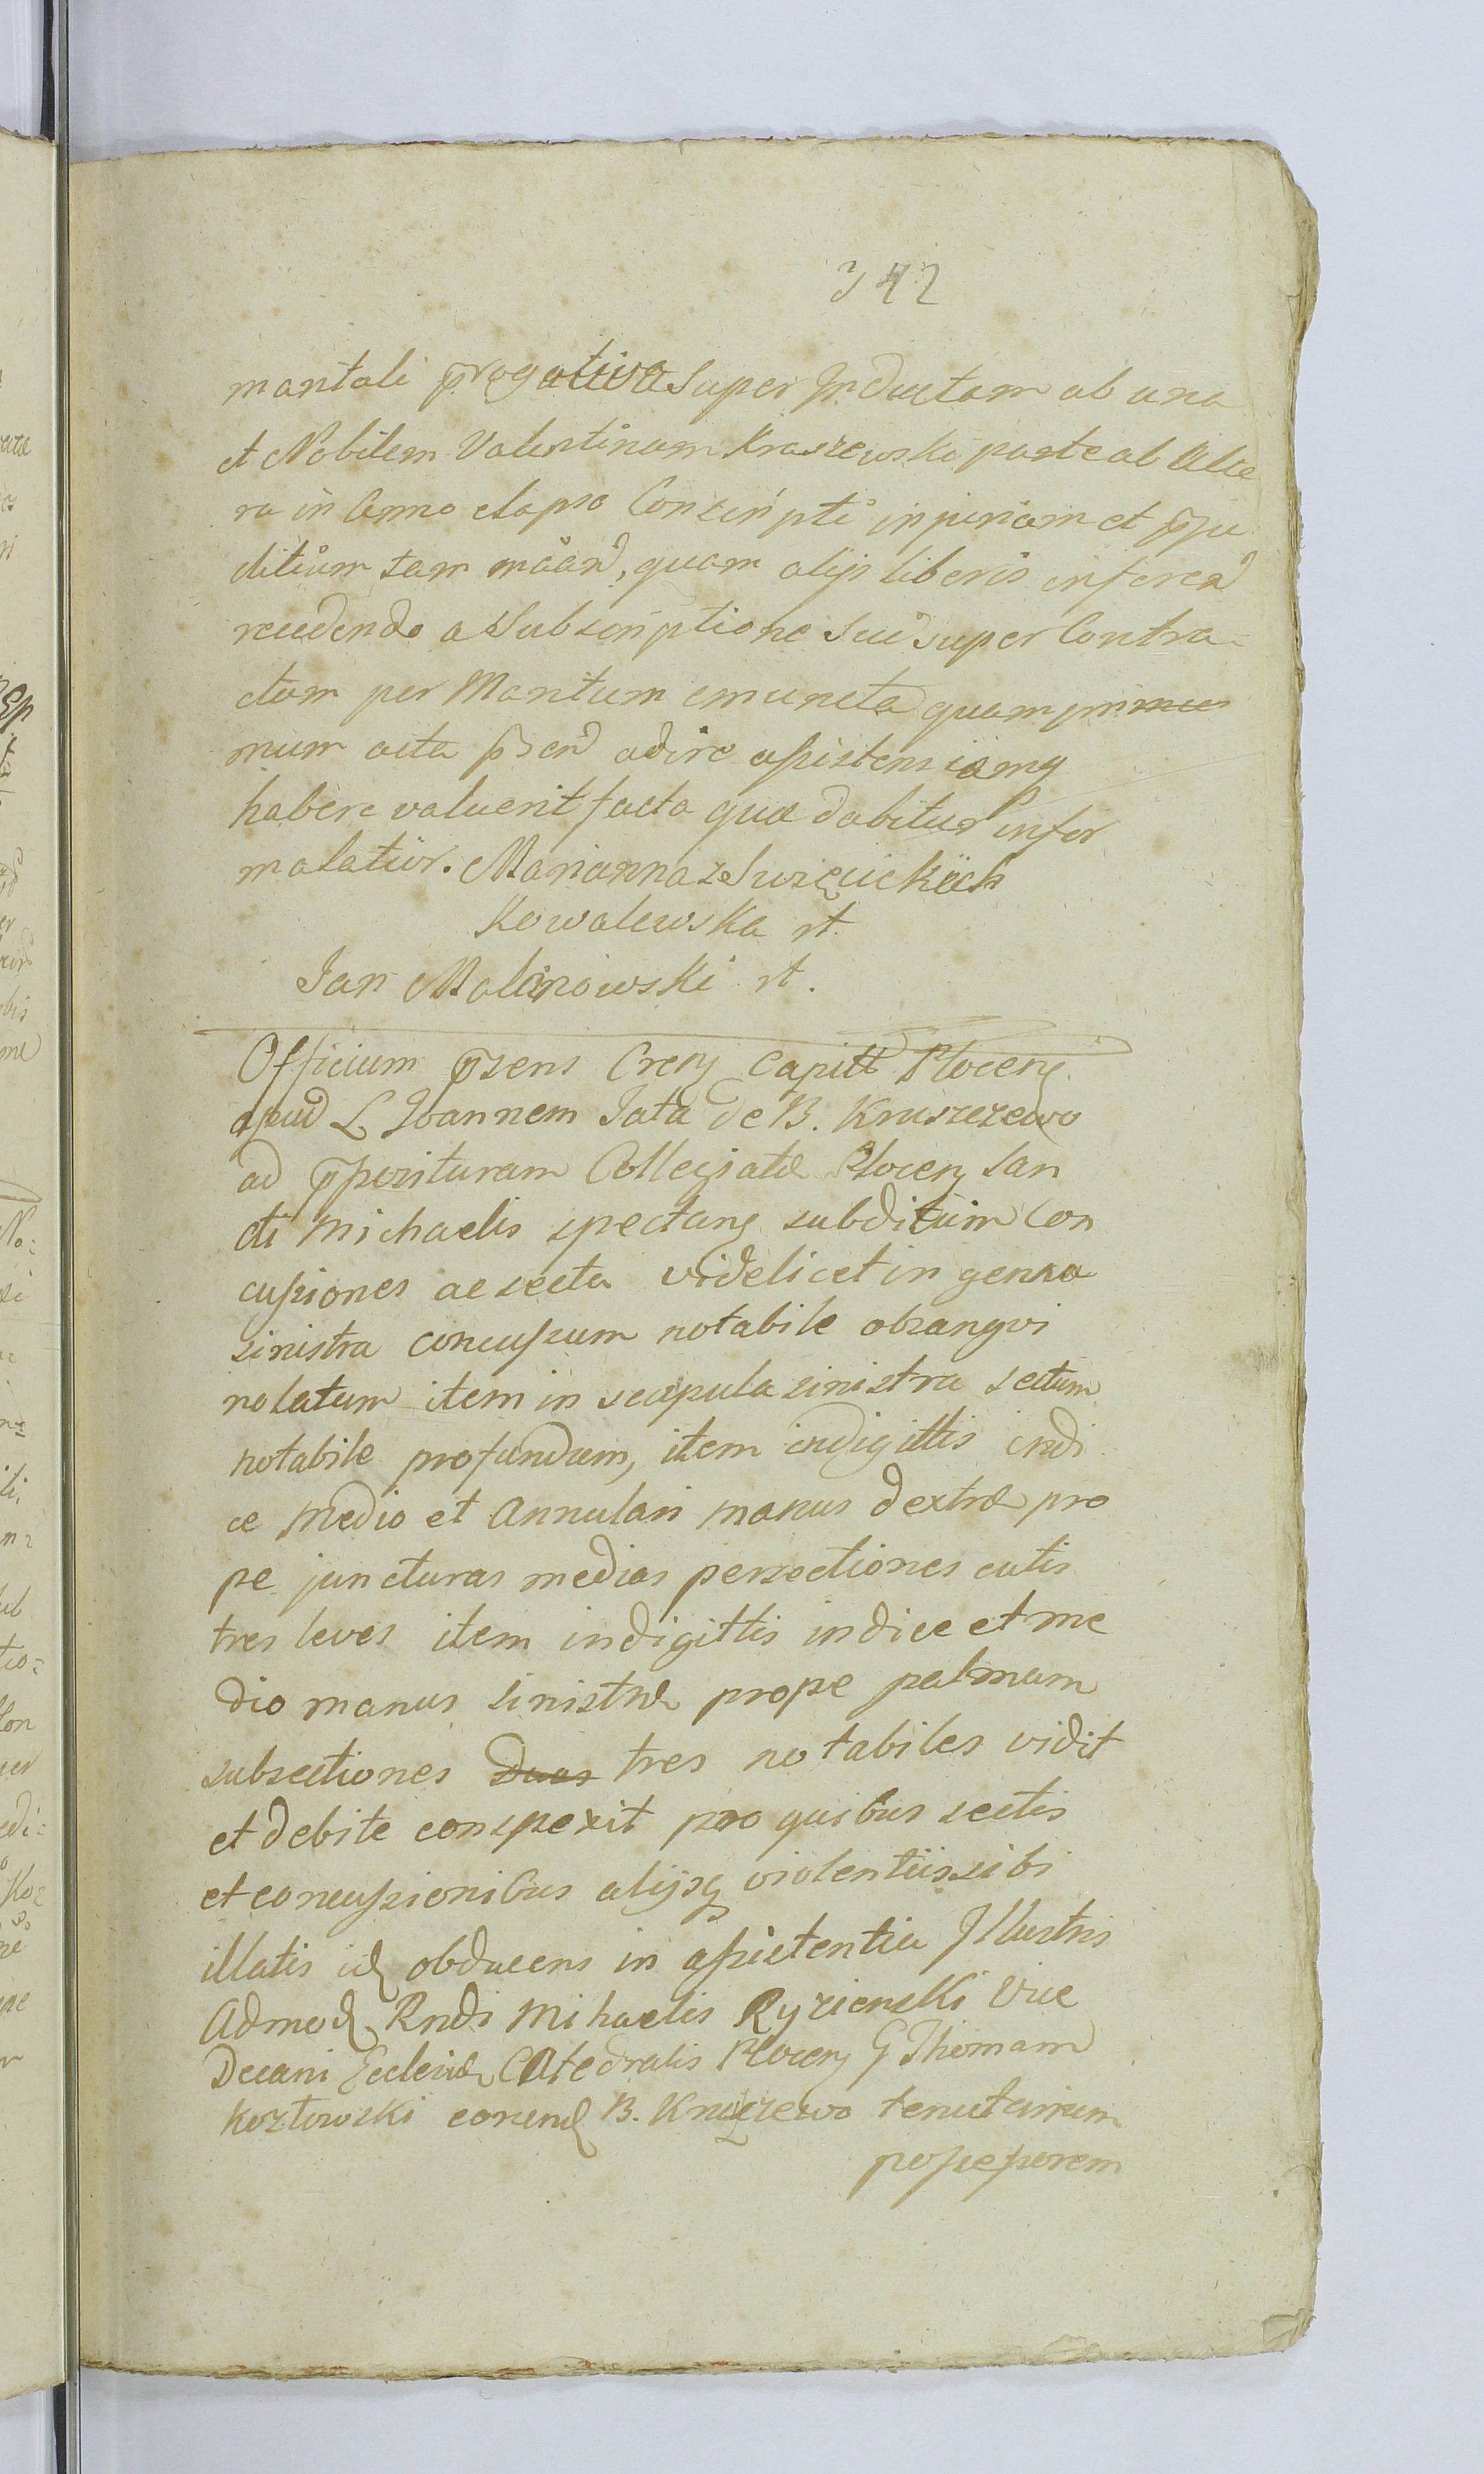 342
mantali progativa super Inductam ab una
et Nobilem Valentinum Kraszewski parte ab Alte
ra in Anno elapso Conscripti injuriam et p̃ju
ditium tam
quam alijs liberis inferen̄
recedendo a Subscriptione Sui super Contra-
ctum per Maritum emuncta quam primum
mum acta p̃sen̄ adire assistensiamq
habere valuerit facta qua dabitur infor
malatur. Marianna z Swięcickich
Kowalewska st.
Jan Malinowski st.
Officium p̃sens Cren̨ Capitt Plocen̨
apud L Joannem Jata de B. Kruszczewo
ad p̃posituram Collegiatæ Plocen̨ San
cti Michaelis spectan̨ subditum Con
cussiones ac secta videlicet in genna
sinistra concussum notabile obsangvi
nolatum item in scapula sinistra sectum
notabile profundum, item indigittis indi
ce Medio et Annulari manus dextræ pro
pe juncturas medias persectiones cutis
tres leves item indigittis indice et me
dio manus sinistræ prope palmam
subsectiones duas tres notabiles vidit
et debite conspexit pro quibus sectis
et concussionibus alijsq violentiis sibi
illatis id obducens in assistentia Illustris
Admod Rndi Mihaelis Ryzienski Vice
Decani Ecclesiæ Catedralis Plocen̨ G Thomam
Kozłowski eorund B. Kruszewo tenutarium
possessorem